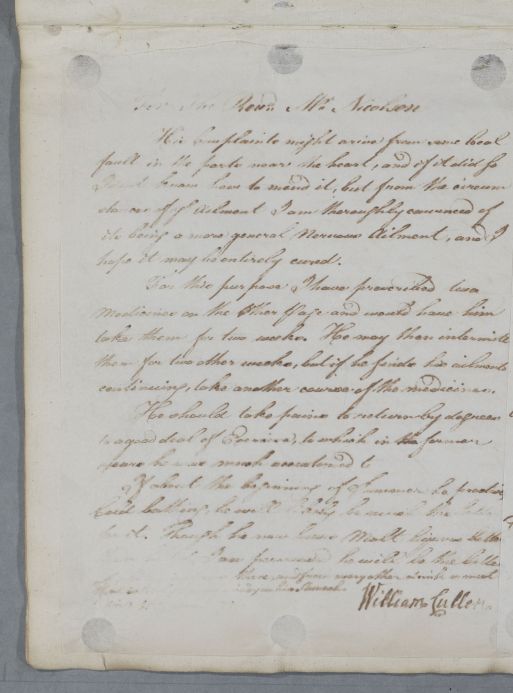 For the Revd. Mr. Nicolson
His complaints might arise from some local
fault in the parts near the heart, and if it did so
I know how to mend it, but from the circum
stances of his ailment I am thoroughly convinced of
its being a more general Nervous Ailment, and I
hope it may be entirely cured.
For this purpose I have prescribed two
Medicines on the Other Page and would have him
take them for two weeks. He may then intermitt
them for two other weeks, but if he finds his ailments
continuing, take another course of the medicines.
He should take pains to return by degrees
to a good deal of Exercise, to which in the former
years he was much accustomed to
If about the beginning of Summer he practise
Cold bathing, he will be much the better
for it. Though he now bears Malt liquors
I am he will be the better
and from every other drink
William Cullen